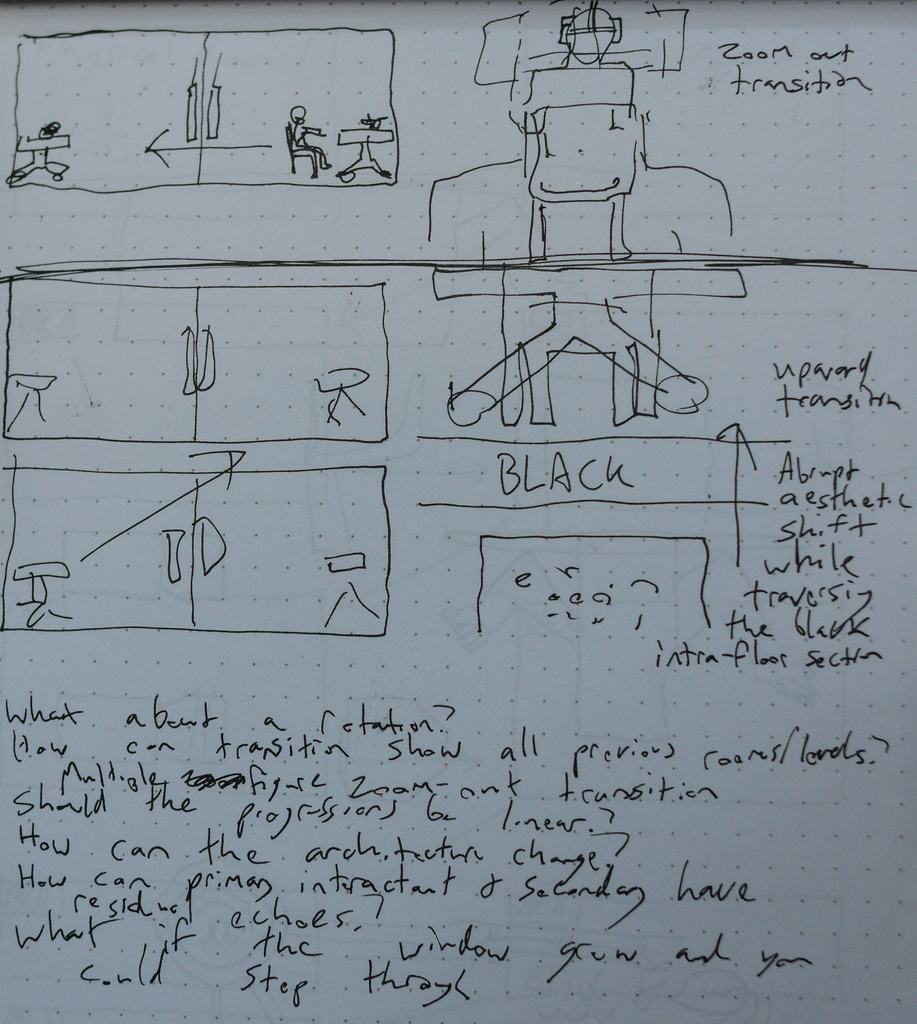 Zoom out
transition
upward
transition
BLACK
Abrupt
aesthetic
shift
while
traversing
the black
intra-floor section
What about a rotation?
How can transition show all previous rooms/levels?
Multiple figure zoom-out transition
Should the progressions be linear?
How can the architecture change?
How can primary interactant & secondary have
residual echoes?
What if the window grew and you
could step through